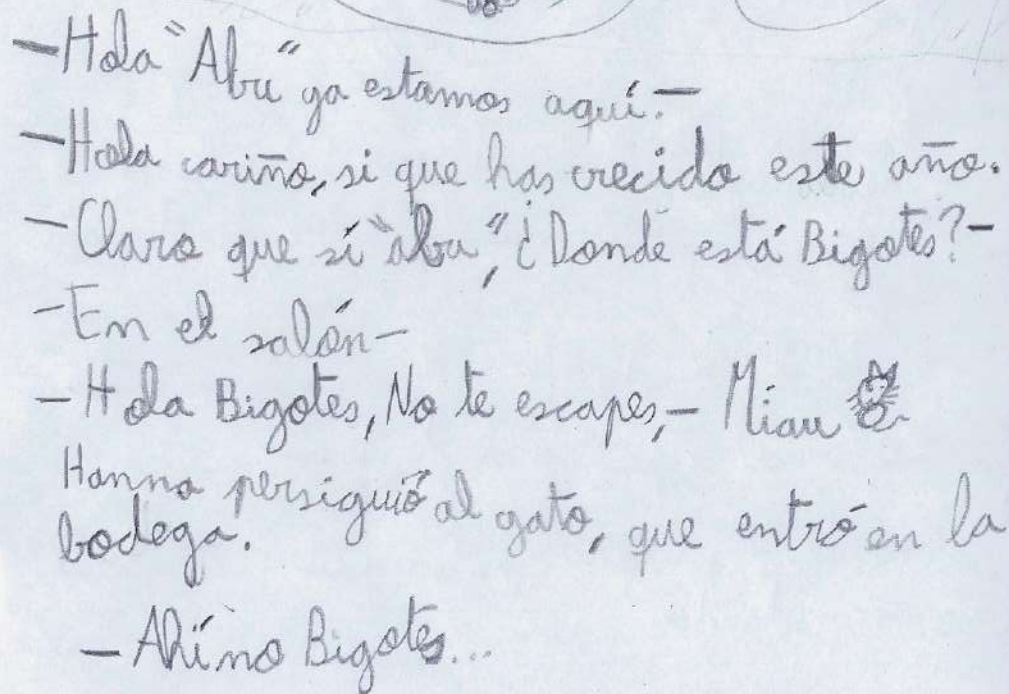 —Hola "Abu" ya estamos aquí.—
—Hola cariño, si que has crecido este año.
—Claro que sí "abu", ¿Donde está Bigotes?—
—En el salón—
—Hola Bigotes, No te escapes,— Miau
Hanna persiguió al gato, que entró en la
bodega.
—Ahí no Bigotes...